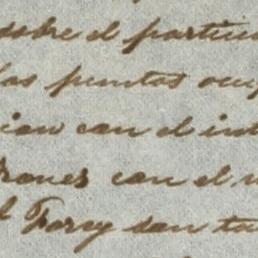 sobre el particu
las puntas ocup
cion con el int
rones con el
el Forey son ta